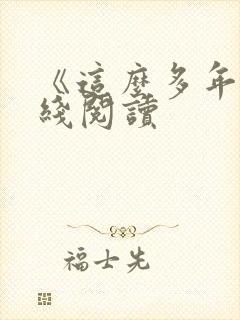 《這麼多年
綫閱讀
福士先